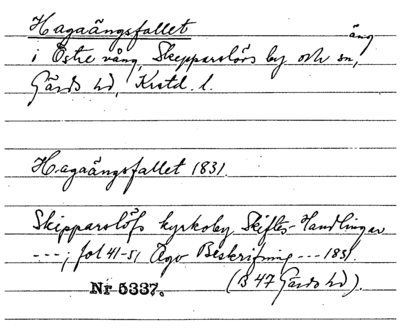 Hagaängsfallet äng
i Östre vång, Skepparslövs by och sn,
Gärds hd, Krstd. l.
Hagaängsfallet 1831.
Skipparslöfs kyrkoby Skiftes-Handlingar
---; fol 41-51 Ägo Beskrifning --- 1831.
Nr 5337. (B 47 Gärds hd).